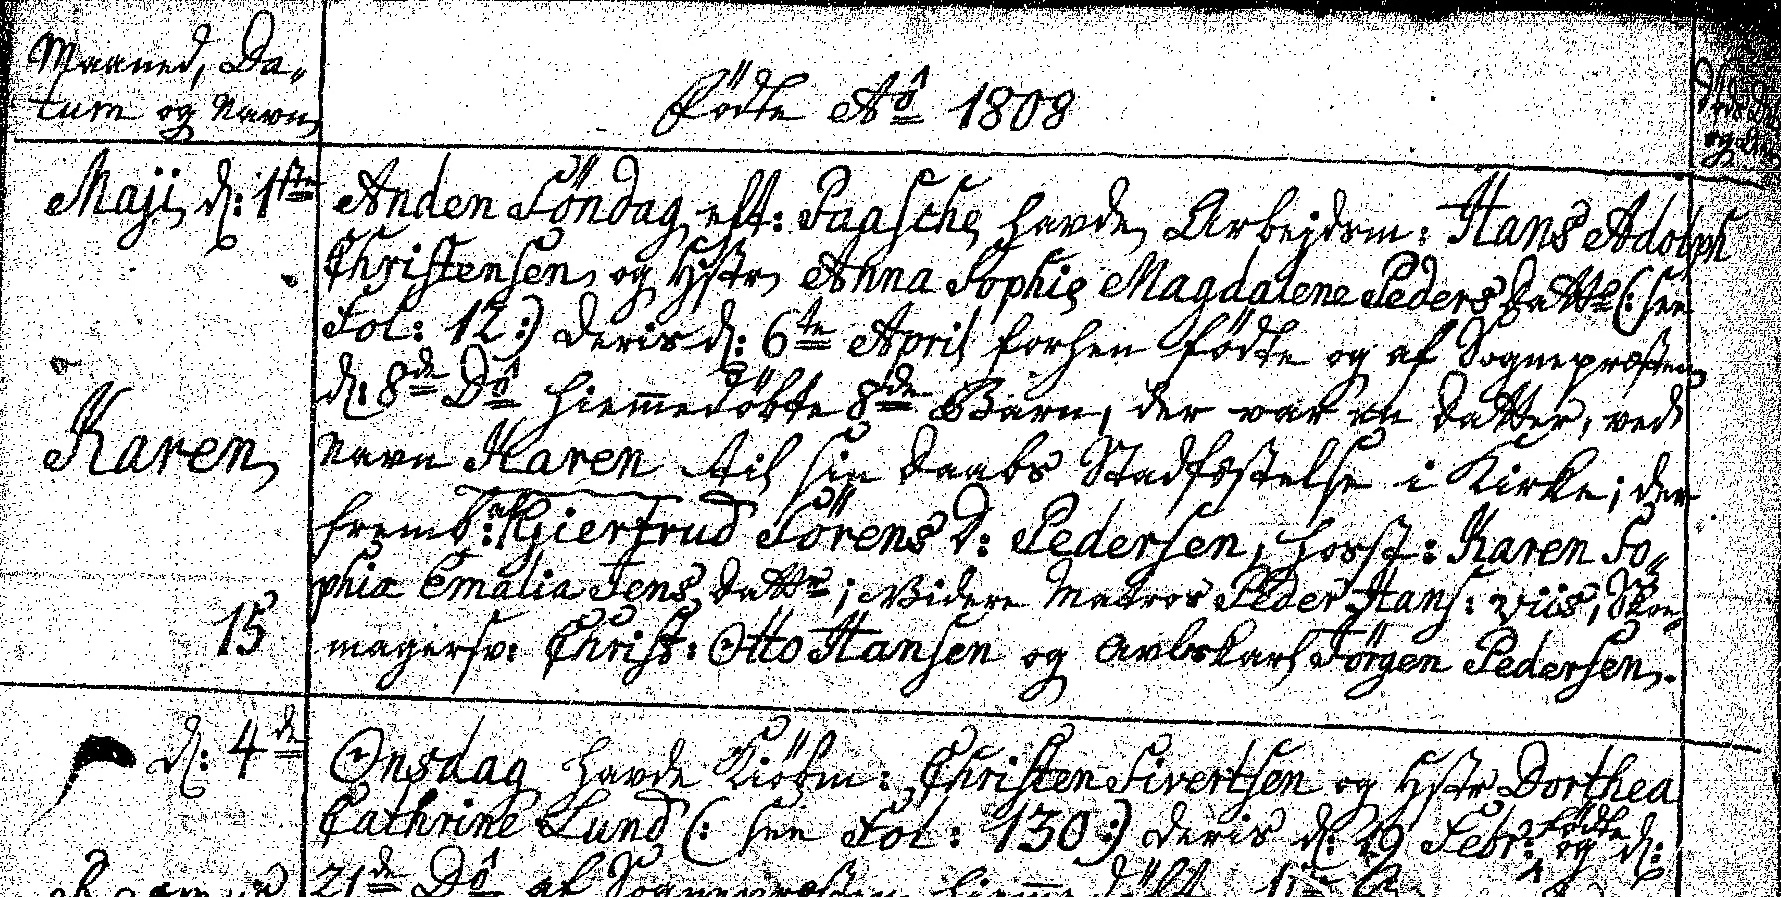 Maaned, Da-
tum og Navn
Födte Aô 1808
Maji d: 1ste Anden Söndag eft: Paasche havde Arbejdsm: Hans Adolph
Christensen og Hstr Anna Sophie Magdalene Peders Datter (: see
Fol: 12 :) deris d: 6te April forhen födte og af Sognepræsten
d: 8de Dô hiemmedöbte 8de Barn, der var en Datter, ved
Karen Navn Karen til sin Daabs Stadfæstelse i Kirke; der
fremb: Giertrud Sörens D: Pedersen, hosst: Karen So-
phia Emalia Jens Dattr; Widere Matros Peder Hans: Viis, Skoe-
15 magersv: Christ: Otto Hansen og Avlskarl Jörgen Pedersen.
d: 4de Onsdag havde Kiöbm: Christen Sivertsen og Hstr Dorthea
Cathrine Lund (: see Fol: 130 :) deris d: 19 Febr: födte og d:
21de Dô af Sognepræsten hiemme döbt